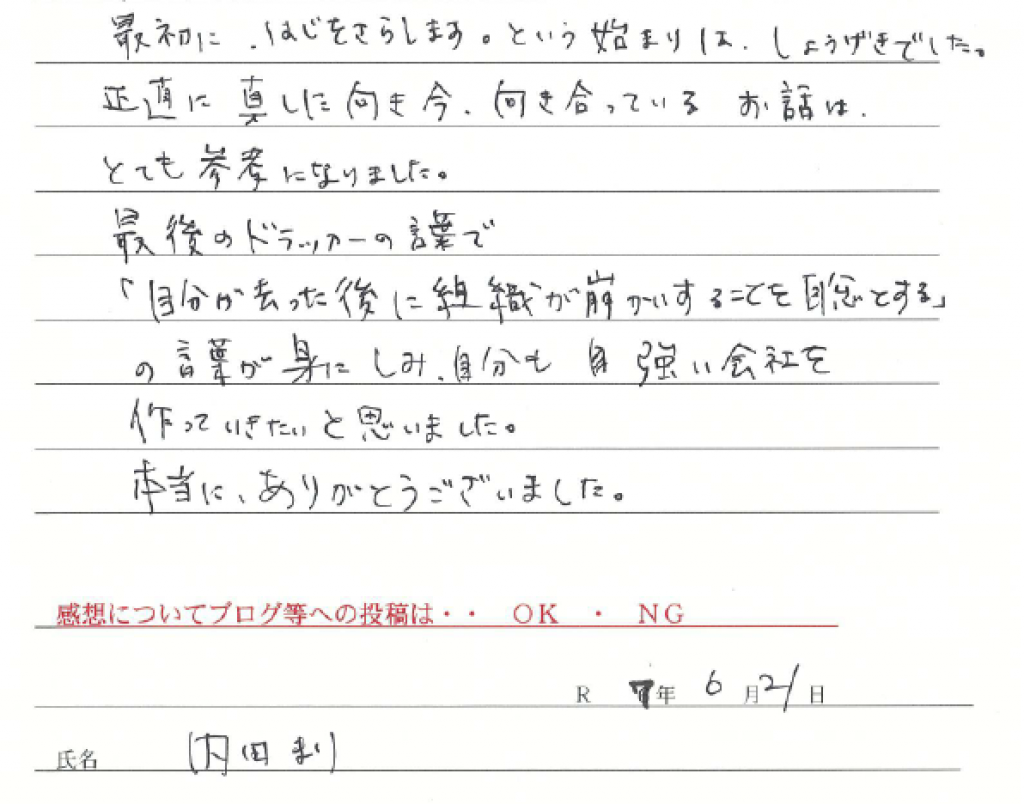 最初に、はじをさらします。という始まりは、しょうげきでした。
正直に 真した向き今、向き合っている お話は、
とても参考になりました。
最後のドラッカーの言葉で
「自分が去った後に組織が崩かいすることを とする」
の言葉が身にしみ、自分も 強い会社を
作っていきたいと思いました。
本当に、ありがとうございました。
感想についてブログ等への投稿は・・ OK ・ NG
R 7年 6月21日
氏名 内田